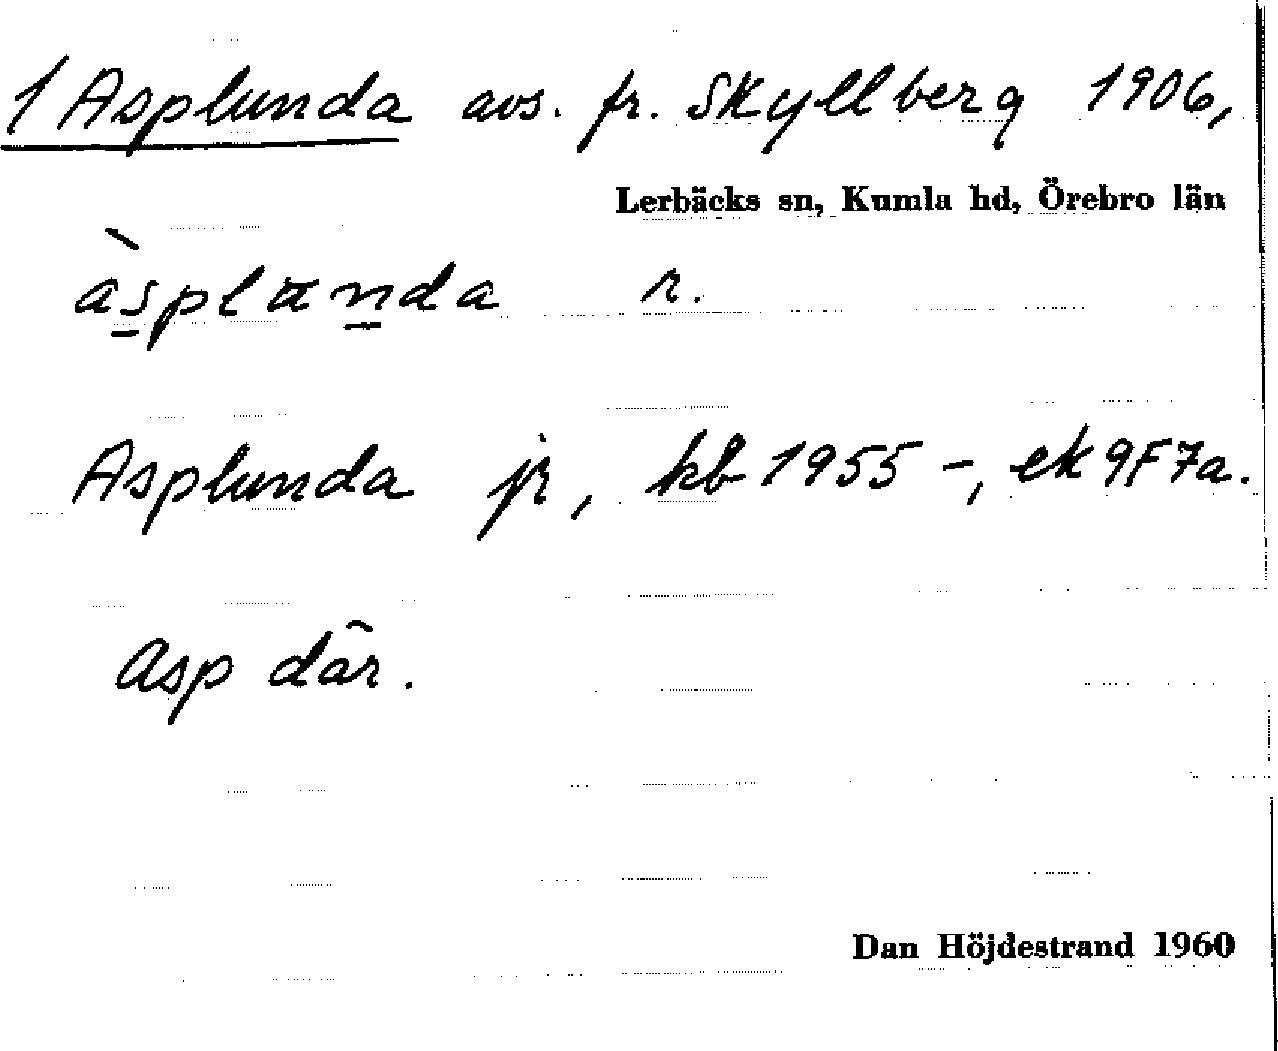 1 Asplunda avs. fr. Skyllberg 1906,
Lerbäcks sn, Kumla hd, Örebro län
àsplanda r.
Asplunda jr, kb 1955 -, ek 9F7a.
Asp där.
Dan Höjdestrand 1960